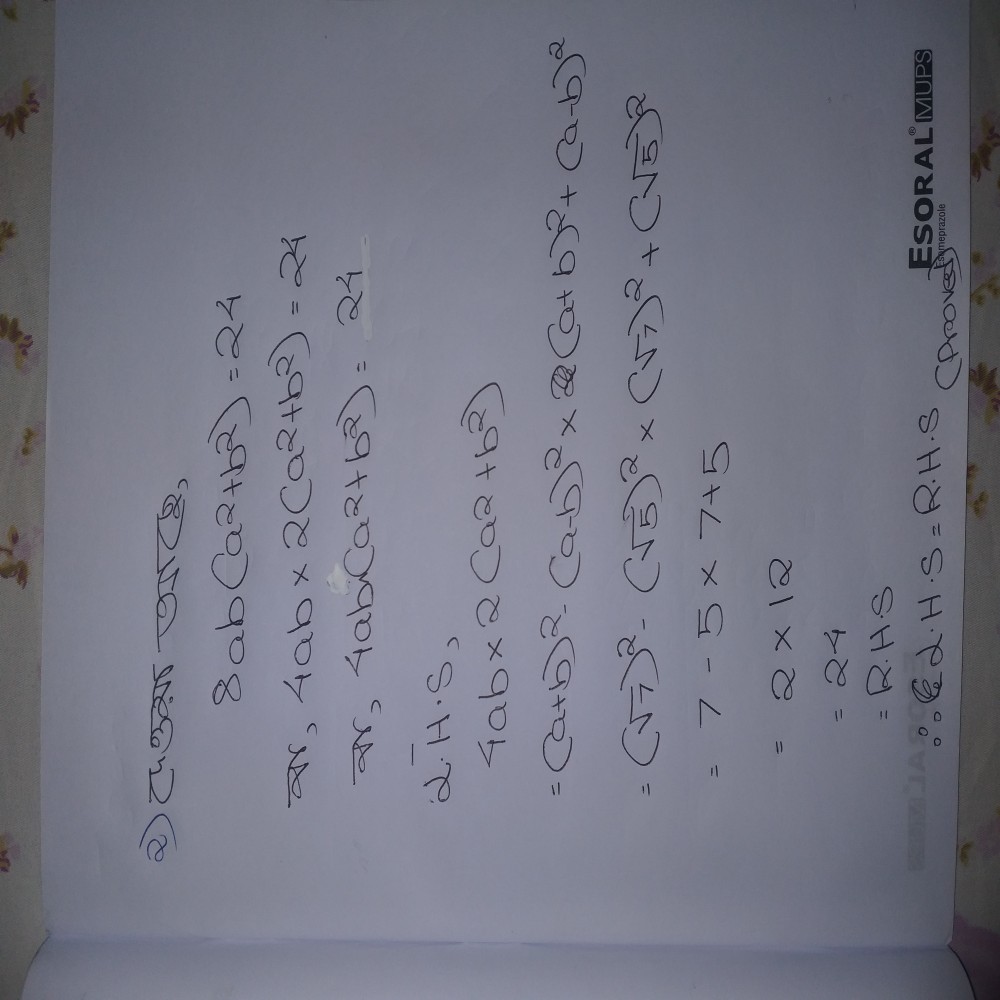 ২) দেওয়া আছে,
8ab(a²+b²) = 24
বা, 4ab × 2(a²+b²) = 24
বা, 4ab(a²+b²) = 24
L.H.S,
4ab × 2(a²+b²)
= (a+b)² - (a-b)² × (a+b)² + (a-b)²
= (√7)² - (√5)² × (√7)² + (√5)²
= 7 - 5 × 7+5
= 2 × 12
= 24
= R.H.S
∴ L.H.S = R.H.S (proved)
ESORAL® MUPS
Esomeprazole